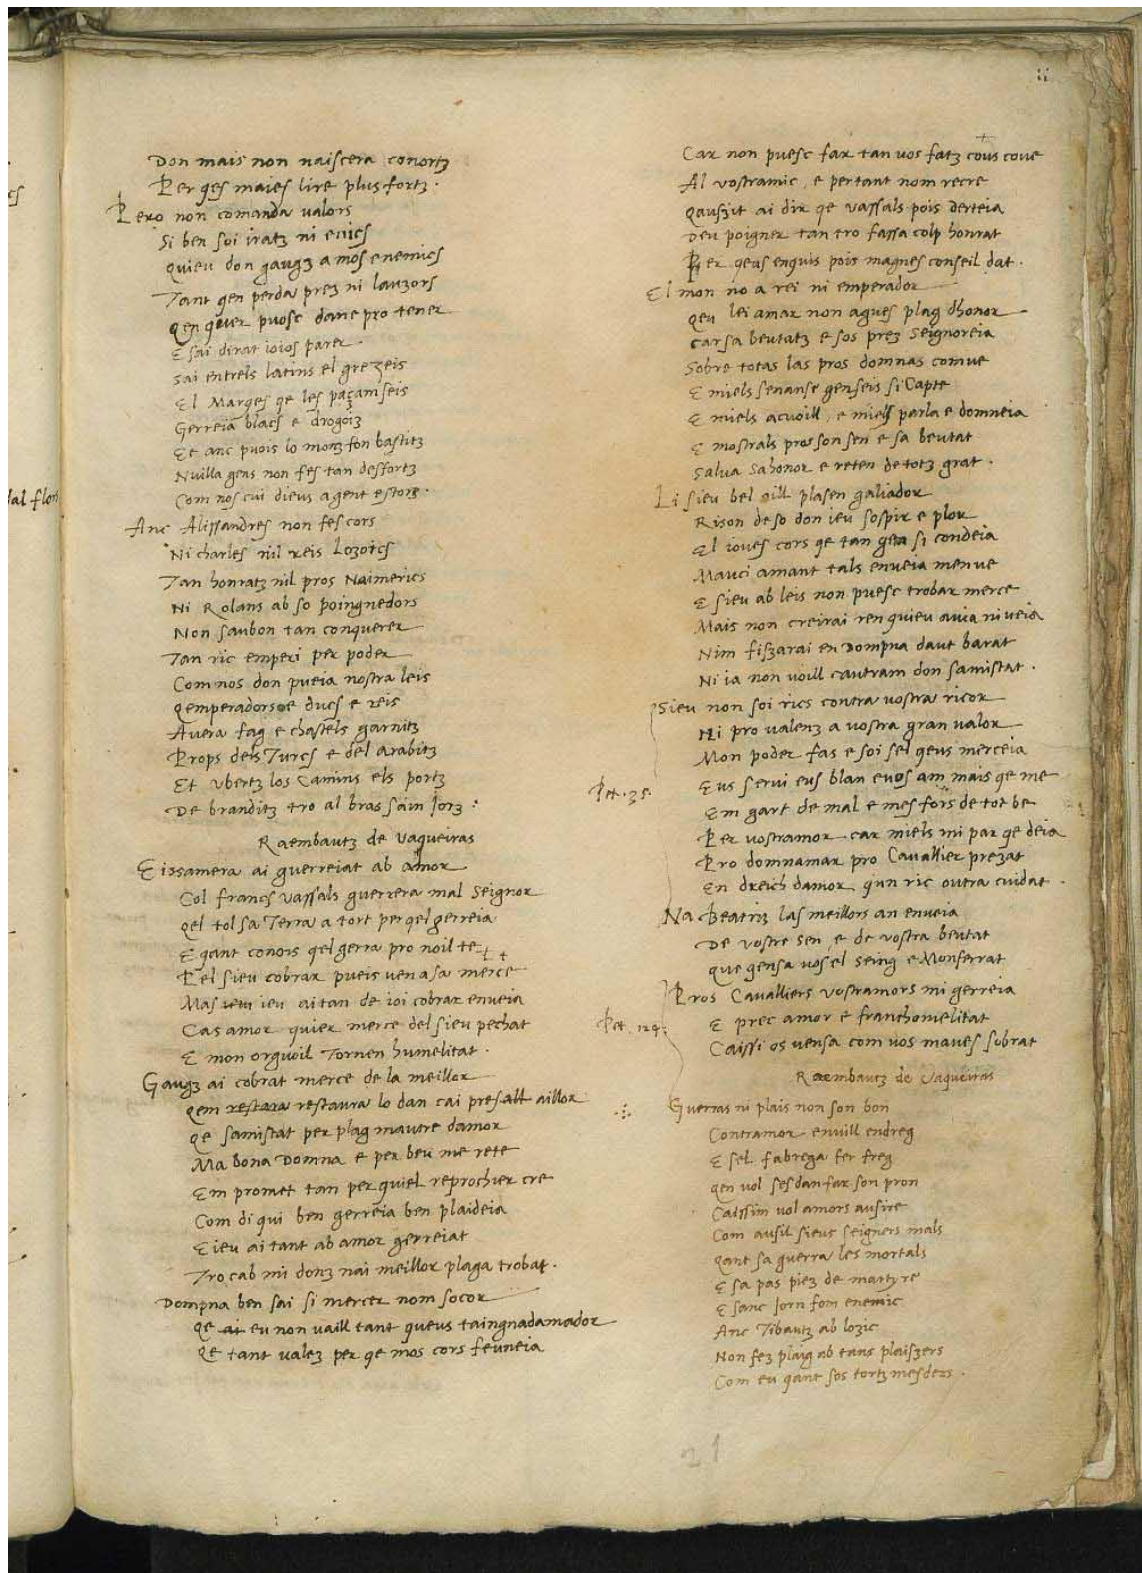 Don mais non naiscera conortz
Per qes maies lire plus fortz.
Pero non comanda valors
Si ben soi iratz ni enics
Quieu don gaugz a mos enemics
Tant qen perda prez ni lauzors
Qen quer puosc danc pro tener
E sai dirat ioios parer.
Sai entrels latins el grezeis
El Marqes qe les
Gerreia blacs e drogoiz
Et anc puois lo monz fon bastitz
Nuilla gens non fes tan desfortz
Com nos cui dieus agent estorz.
Anc Alissandres non fes cors
Ni charles nil reis Lozoics
Tan honratz nil pros Naimerics
Ni Rolans ab so poingnedors
Non saubon tan conquerer
Tan ric emperi per poder
Com nos don pueia nostra leis
Qemperadors e ducs e reis
Avem fag e chastels garnitz
Props dels Turcs e del arabitz
Et ubertz los Camins els portz
De branditz tro al bras sain Jorz :
Raembautz de Vaqueiras
Eissamen ai guerreiat ab amor
Col francs vassals guerrera mal Seignor
Qel tol sa Terra a tort per qel gerreia
E qant conois qel gerra pro noil te
Pel sieu cobrar pueis ven a sa merce
Mas ieu ai tan de ioi cobrar enveia
Cas amor quier merce del sieu pechat
E mon orguoil Tornen humelitat.
Gaugz ai cobrat merce de la meillor
Qem restara restaura lo dan cai pres aillor
Qe samistat per plag mautre damor
Ma bona Domna e per beu me rete
Em promet tan per quiel reprochier cre
Com di qui ben gerreia ben plaideia
E ieu ai tant ab amor gerreiat
Tro cab mi donz nai meillor plaga trobat.
Dompna ben sai si mercer nom socor
Qe eu non vaill tant queus taingnadamador
Qe tant valez per qe mos cors feuneia
Car non puesc far tan vos fatz cove
Al vostramic, e per tant nom recre
Qauzit ai dir qe vassals pois derreia
Deu poigner tan tro fassa colp honrat
Per qeus enquis pois magues conseil dat.
El mon no a rei ni emperador
Qeu lei amar non agues plag dhonor
Car sa beutatz e sos prez Seignoreia
Sobre totas las pros domnas comve
E miels senanse genseis si Capte
E miels acuoill, e miels parla e domneia
E mostrals pros son sen e sa beutat
Salva Sahonor e reten de totz grat.
Li sieu bel oill plasen galiador
Rison de so don ieu sospir e plor
El ioves cors qe tan gen si condeia
Mauci amant tals enveia men ve
E sieu ab leis non puesc trobar merce
Mais non creirai ren quieu auia ni veia
Nim fizarai en Dompna daut barat
Ni ia non voill cautram don samistat.
Sieu non soi rics contra vostra ricor
Ni pro valenz a vostra gran valor
Mon poder fas e soi sel qeus merceia
Eus servi eus blan evos am mais qe me
Em gart de mal e mesfors de tot be
Per vostramor car miels mi par qe deia
Pro domnamar pro Cavallier prezat
En dreich damor qun ric outra cuidat.
Na Beatriz las meillors an enveia
De vostre sen, e de vostra beutat
Que gensa vos el seing e Monferrat
Pros Cavalliers vostramors mi gerreia
E prec amor e franchomelitat
Caissi os vensa com vos maves sobrat
Raembautz de Vaqueiras
Guerras ni plais non son bon
Contramor enuill endreg
E sel fabrega fer freg
Qen vol ses dan far son pron
Caissim vol amors ausire
Com ausil sieus seigners mals
Qant sa guerra les mortals
E sa pas piez de martyre
E sanc Jorn fom enemic
Anc Tibautz ab lozic
Non fez plaig ab tans plaizers
Com eu qant sos tortz mesders.
Pet. 35.
Pet. 129.
21